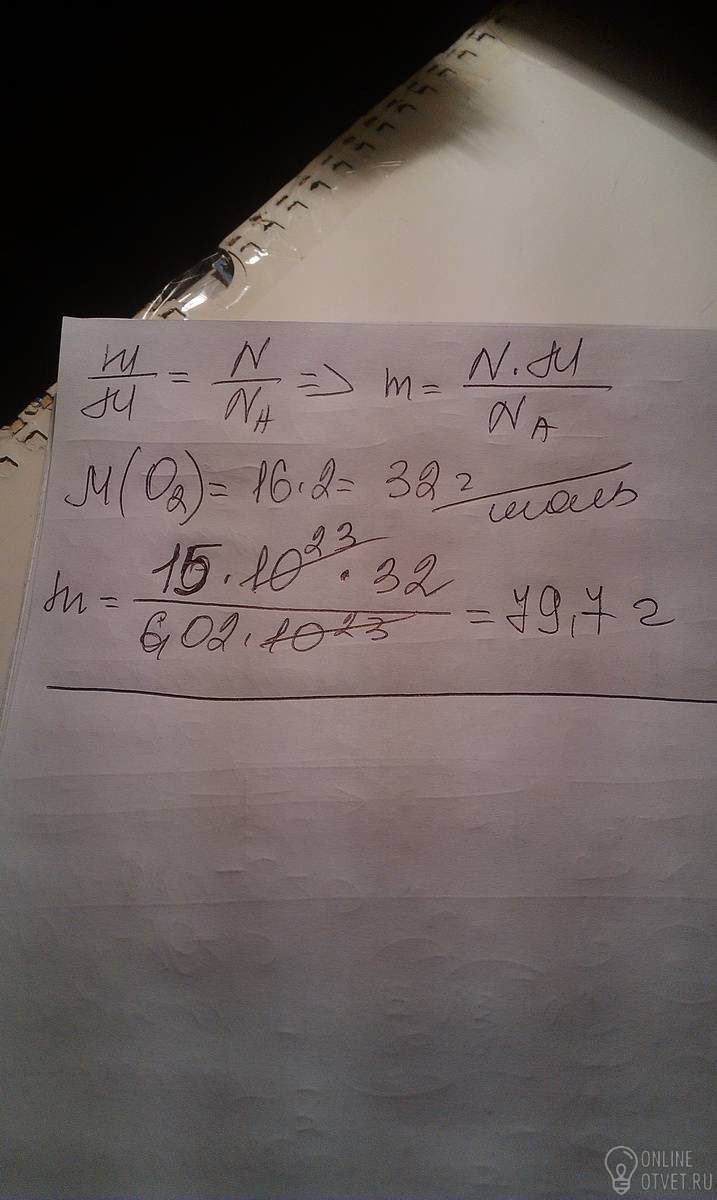 m/M = N/NA => m = N·M/NA
M(O₂) = 16·2 = 32 г/моль
m = 15·10²³·32/6,02·10²³ = 79,7 г
ONLINE
OTVET.RU